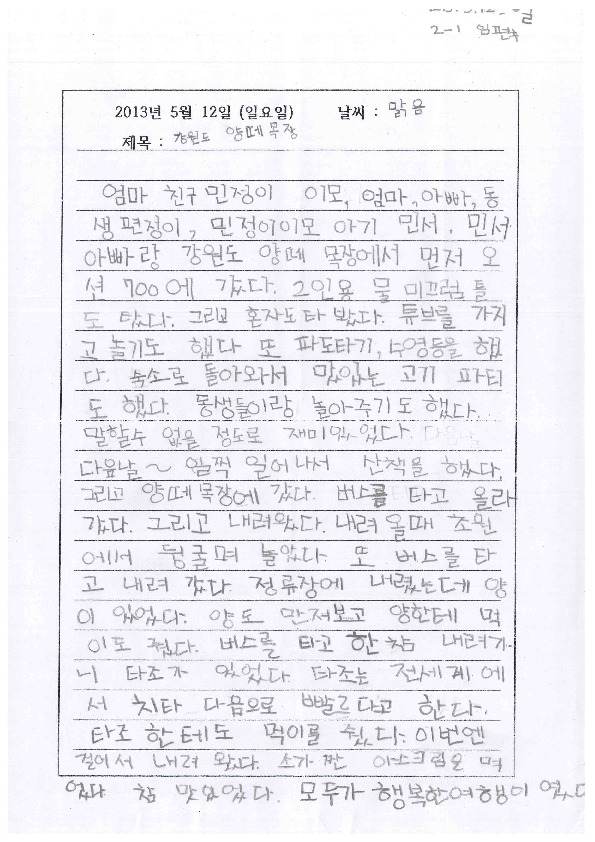 2-1 임편수
2013년 5월 12일 (일요일) 날씨 : 맑음
제목 : 강원도 양떼목장
엄마 친구 민정이 이모, 엄마, 아빠, 동
생 편정이, 민정이이모 아기 민서, 민서
아빠랑 강원도 양떼 목장에서 먼저 오
션 700에 갔다. 2인용 물 미끄럼틀
도 탔다. 그리고 혼자도 타 봤다. 튜브를 가지
고 놀기도 했다 또 파도타기, 수영등을 했
다. 숙소로 돌아와서 맛있는 고기 파티
도 했다. 동생들이랑 놀아주기도 했다.
말할수 없을 정도로 재미있었다. 다음날
다음날~ 일찍 일어나서 산책을 했다.
그리고 양떼목장에 갔다. 버스를 타고 올라
갔다. 그리고 내려왔다. 내려 올때 초원
에서 뒹굴며 놀았다. 또 버스를 타
고 내려 갔다. 정류장에 내렸는데 양
이 있었다. 양도 만져보고 양한테 먹
이도 줬다. 버스를 타고 한참 내려가
니 타조가 있었다 타조는 전세계에
서 치타 다음으로 빠르다고 한다.
타조 한테도 먹이를 줬다. 이번엔
걸어서 내려 왔다. 소가 짠 아스크림을 먹
었다 참 맛있었다. 모두가 행복한여행이 였다